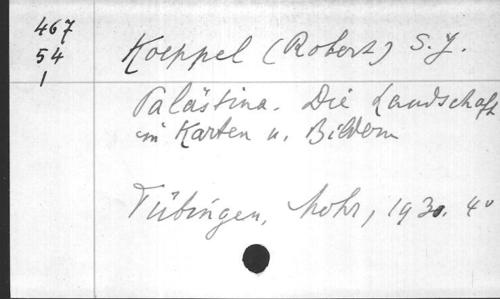 467
54
1
Koeppel (Robert) S. J.
Palästina. Die Landschaft
in Karten u. Bildern
Tübingen, Mohr, 1930. 4°